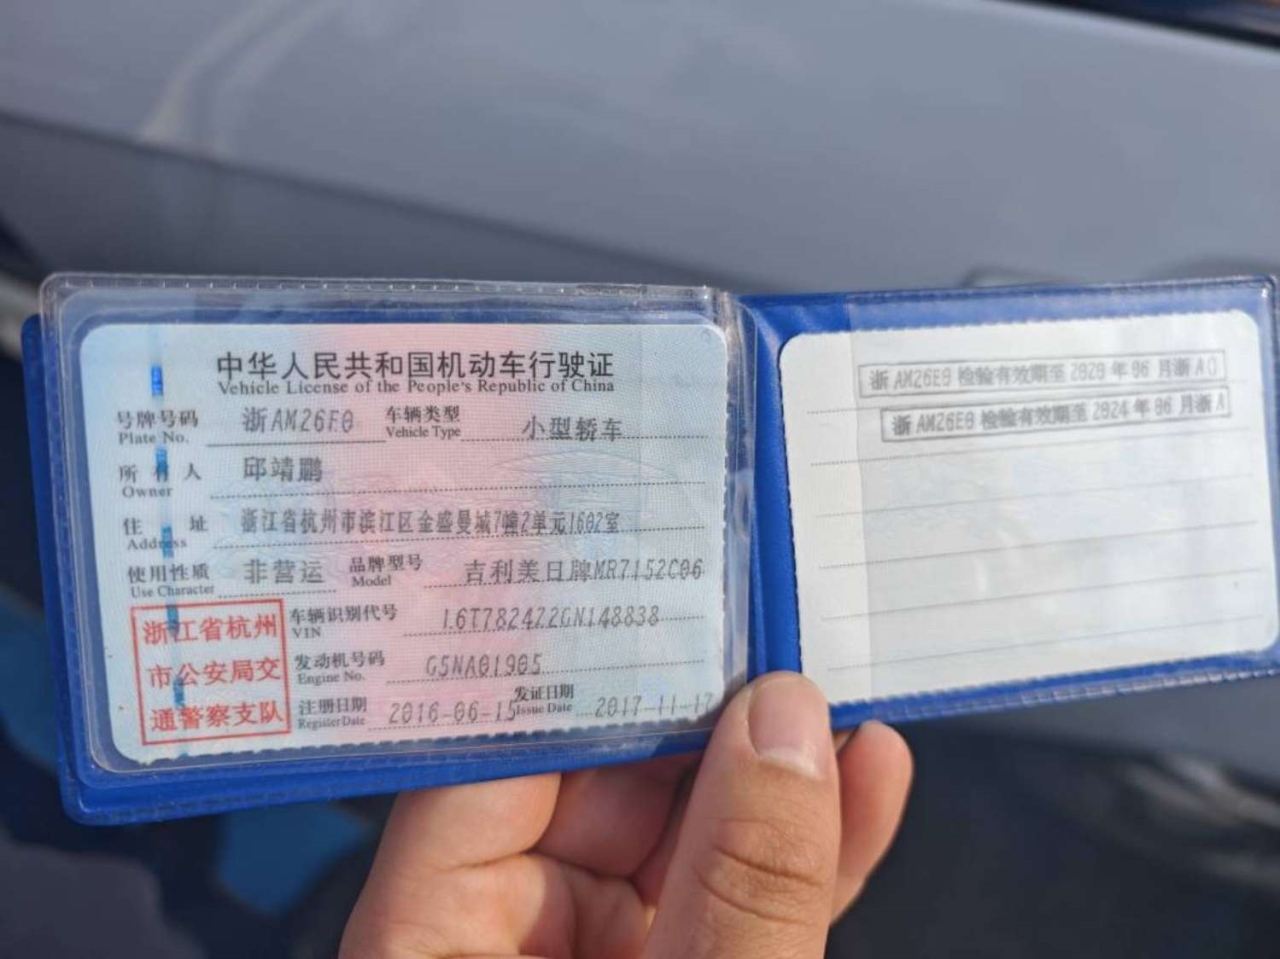 中华人民共和国机动车行驶证
Vehicle License of the People's Republic of China
号牌号码 浙AM26E0 车辆类型 小型轿车
Plate No. Vehicle Type
所有人 邱靖鹏
Owner
住址 浙江省杭州市滨江区金盛曼城7幢2单元1602室
Address
使用性质 非营运 品牌型号 吉利美日牌MR7152C06
Use Character Model
浙江省杭州
市公安局交
通警察支队
车辆识别代号 L6T7824Z2GN148838
VIN
发动机号码 G5NA01905
Engine No.
注册日期 2016-06-15 发证日期 2017-11-17
Register Date Issue Date
浙AM26E0检验有效期至2020年06月浙A()
浙AM26E0检验有效期至2024年06月浙A